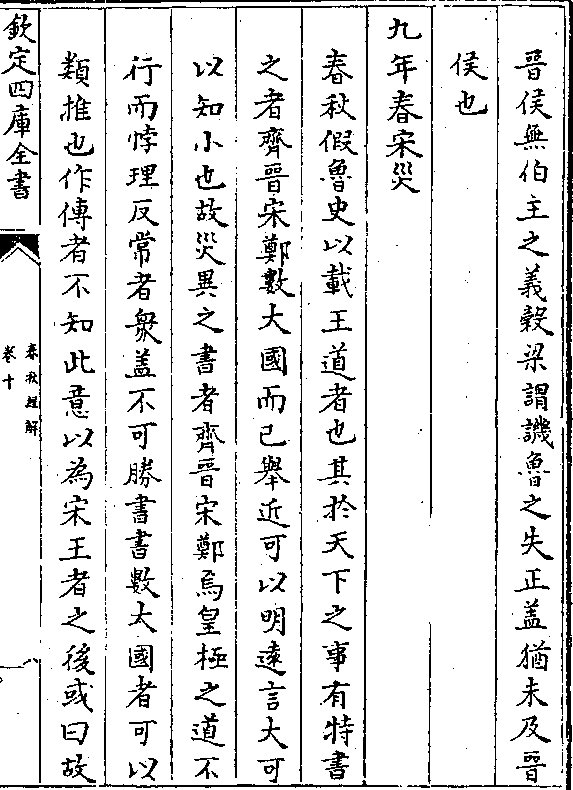 晉侯無伯主之義穀梁謂譏魯之失正盖猶未及晉
侯也
九年春宋災
春秋假魯史以載王道者也其扵天下之事有特書
之者齊晉宋鄭數大國而已舉近可以明逺言大可
以知小也故災異之書者齊晉宋鄭焉皇極之道不
行而悖理反常者衆盖不可勝書書數大國者可以
類推也作傳者不知此意以為宋王者之後或曰故
欽定四庫全書
春秋經解
卷十